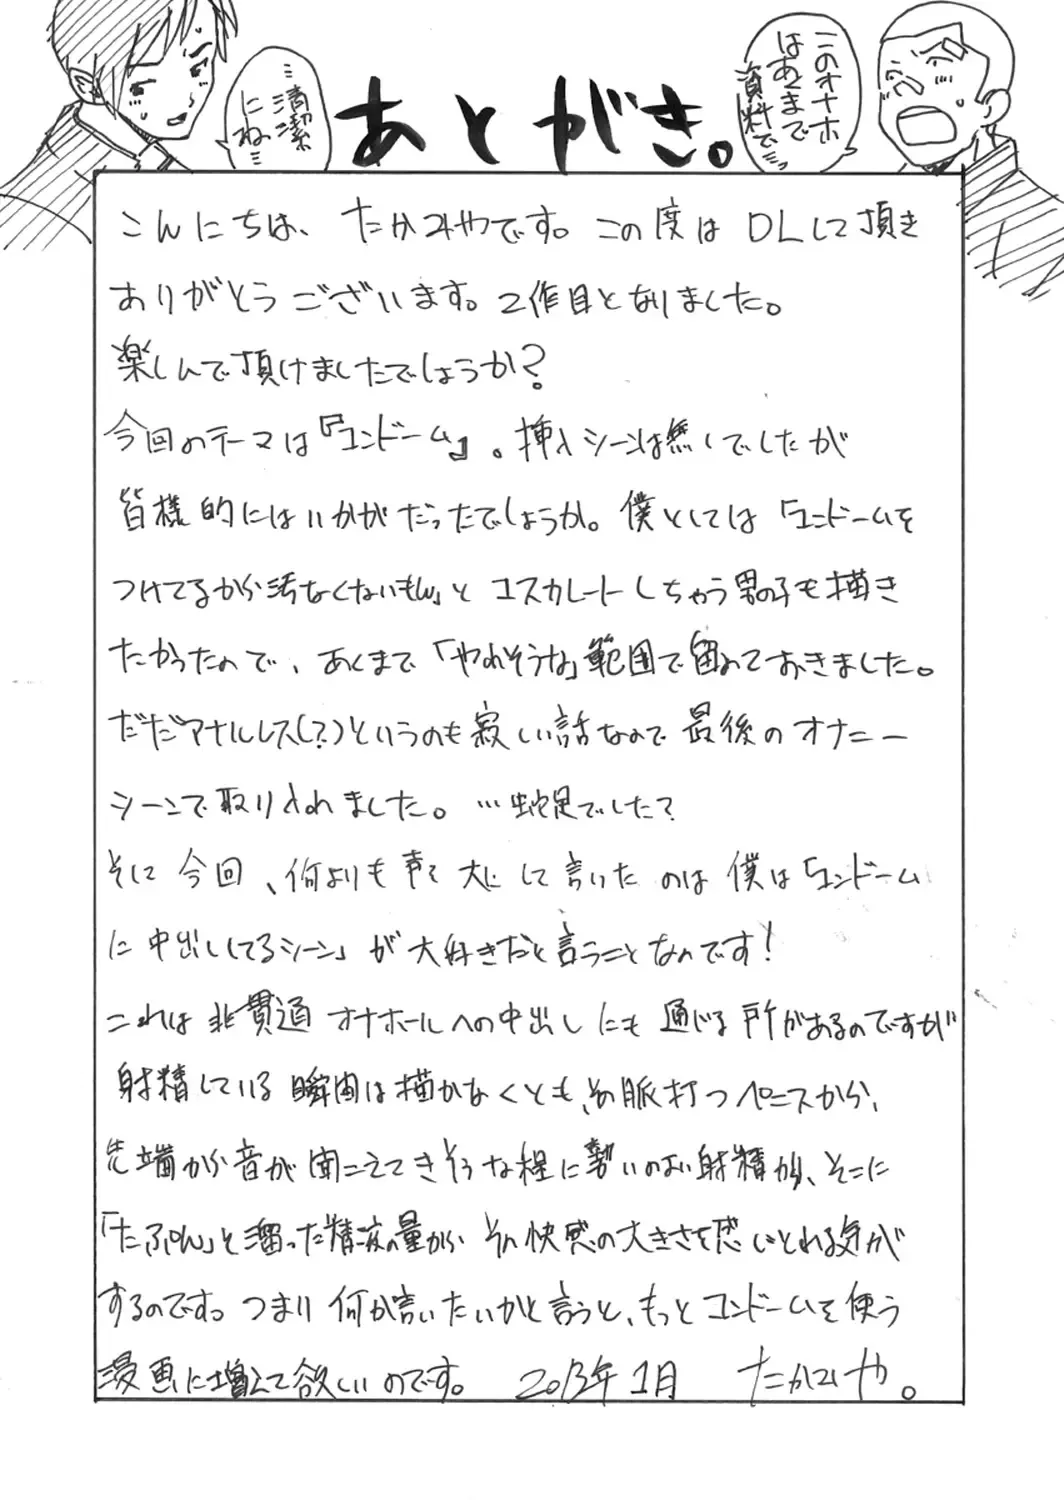 あとがき。
このオナホ
はあくまで
資料でっ
…清潔
にね…
こんにちは、たかみやです。この度はDLして頂き
ありがとうございます。2作目となりました。
楽しんで頂けましたでしょうか?
今回のテーマは『コンドーム』。挿入シーンは無しでしたが
皆様的にはいかがだったでしょうか。僕としては「コンドームを
つけてるから汚なくないもん」と エスカレートしちゃう男の子も描き
たかったので、あくまで「やれそうな」範囲で留めておきました。
ただアナルレス(?)というのも寂しい話なので最後のオナニー
シーンで取り入れました。…蛇足でした?
そして今回、何よりも声を大にして言いたのは僕は「コンドーム
に中出ししてるシーン」が大好きだと言うことなのです!
これは非貫通オナホールへの中出しにも通じる所があるのですが
射精している瞬間は描かなくとも、その脈打つペニスから、
先端から音が聞こえてきそうな程に勢いのよい射精から、そこに
「たぷん」と溜った精液の量から その快感の大きさを感じとれる気が
するのです。つまり何が言いたいかと言うと、もっとコンドームを使う
漫画に増えて欲しいのです。 2013年1月 たかみや。